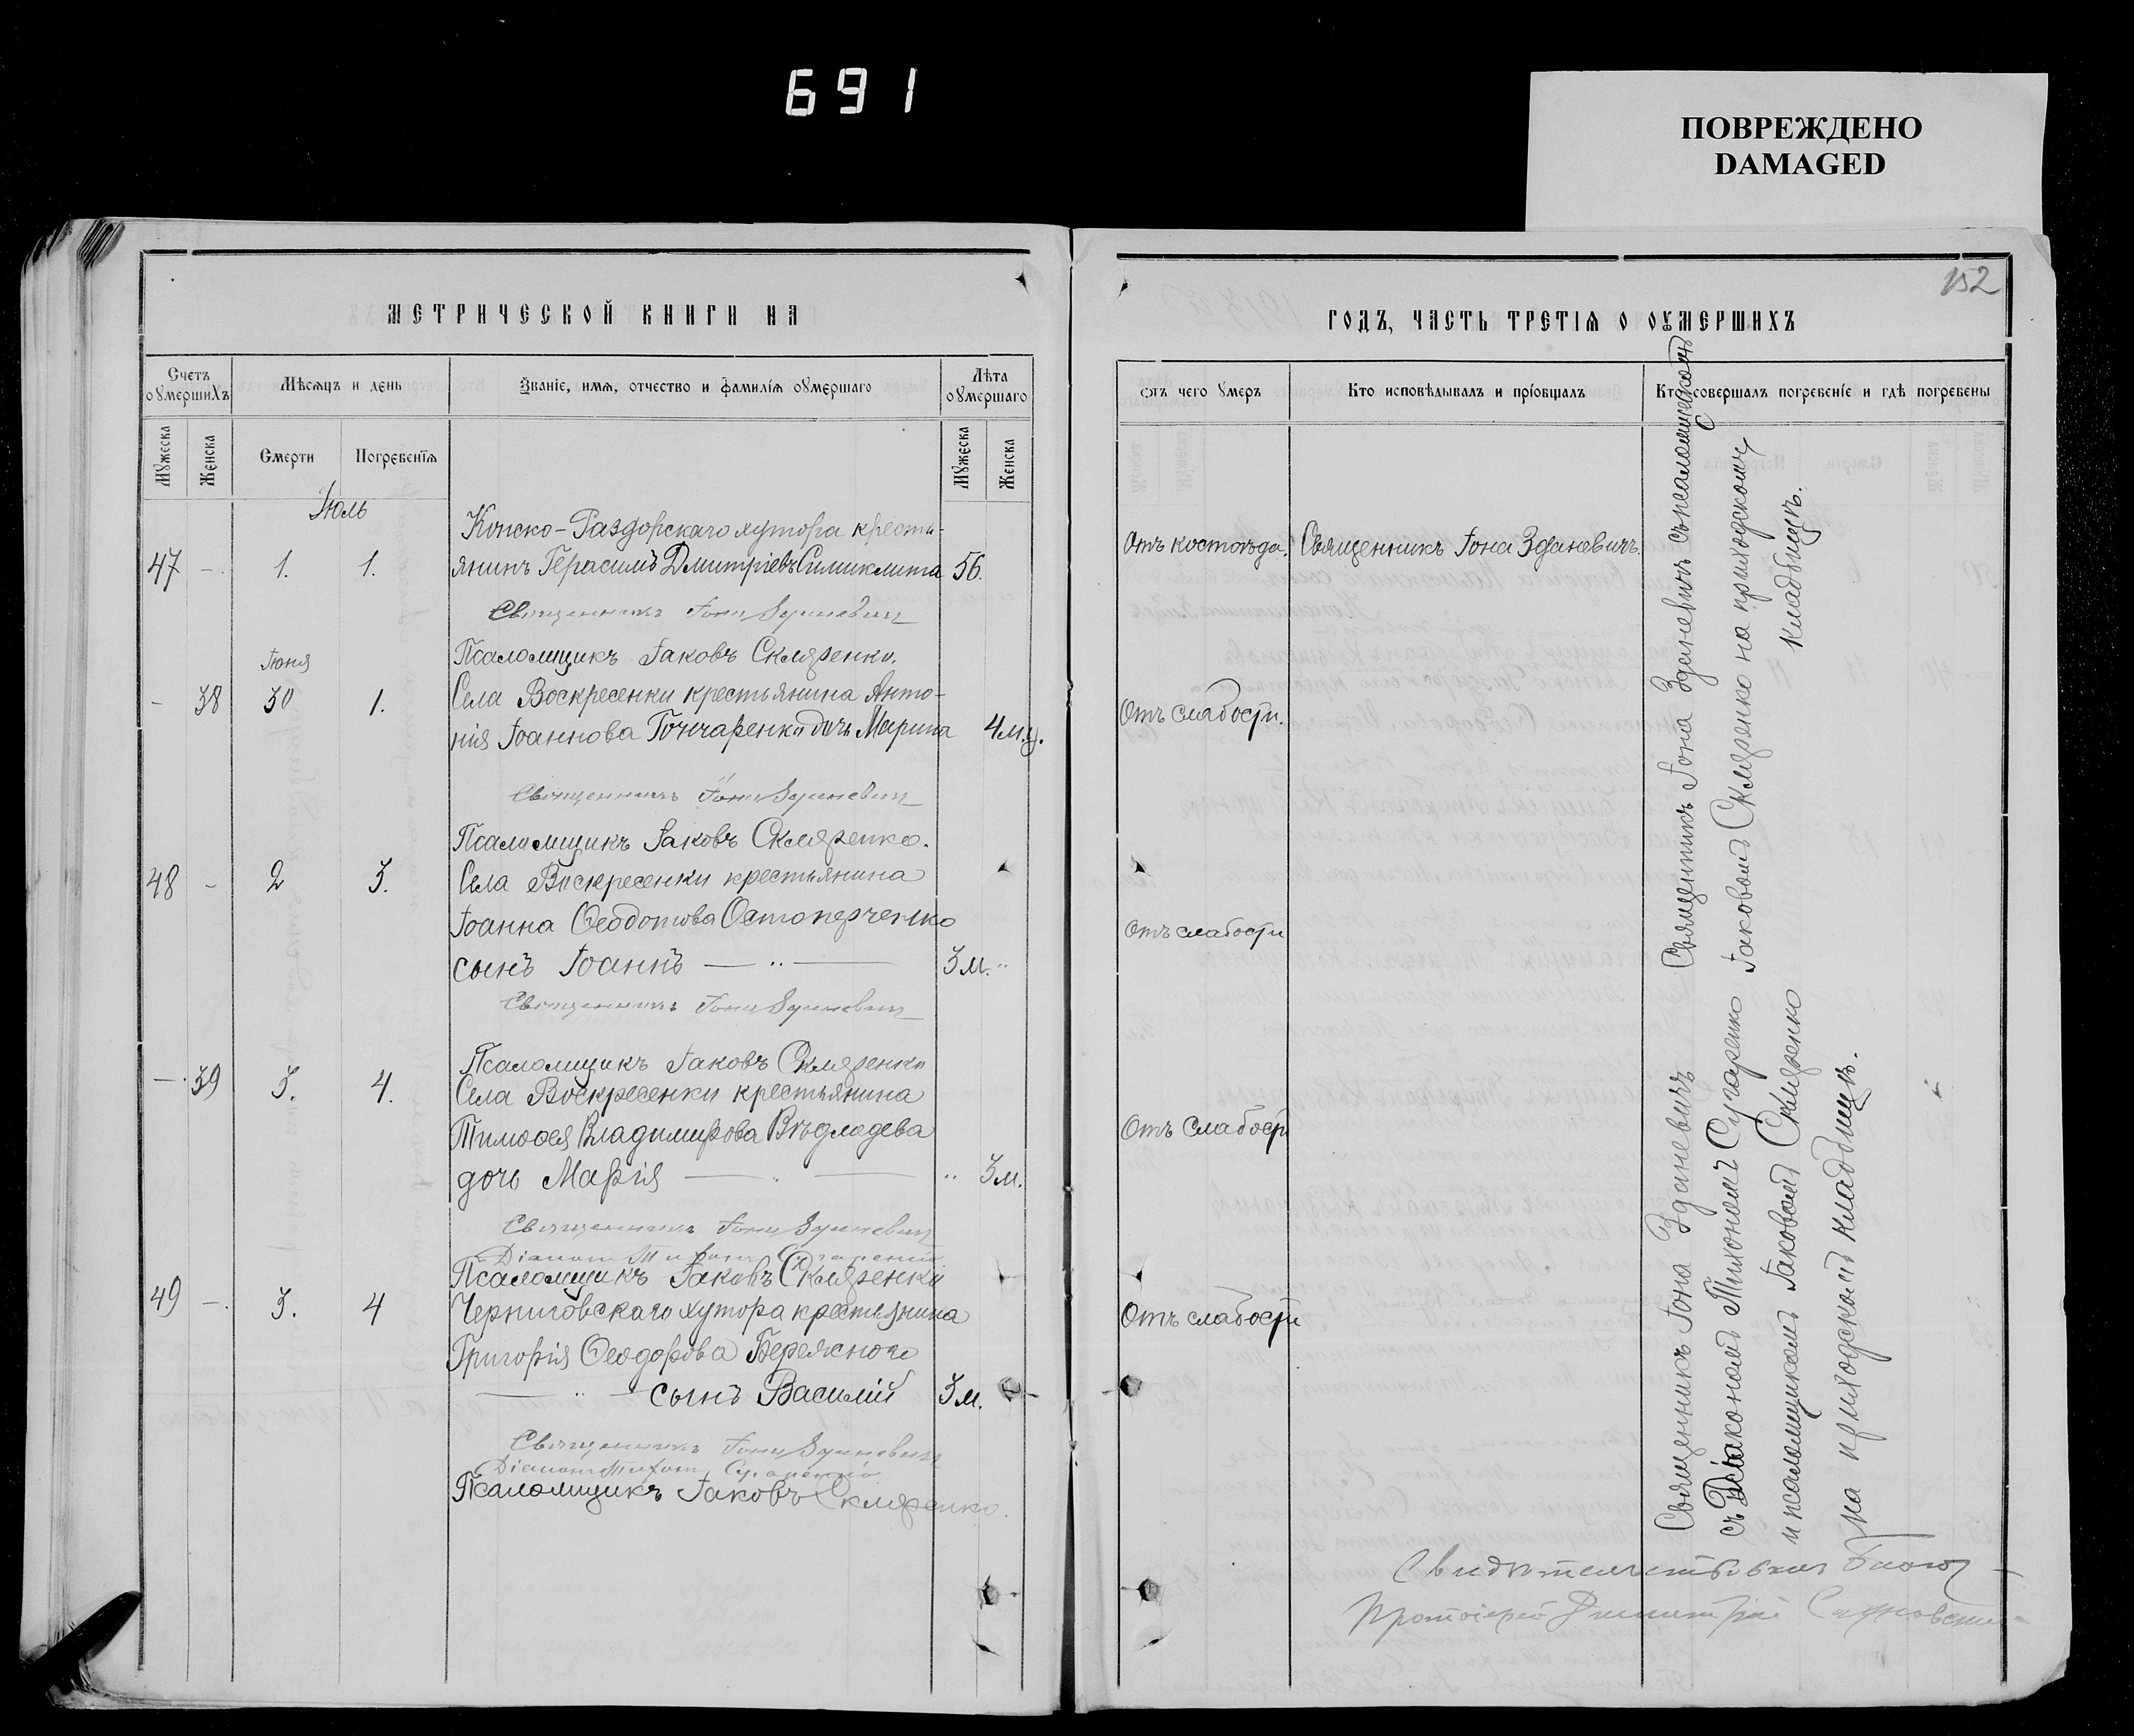 691
ПОВРЕЖДЕНО
DAMAGED
152
МЕТРИЧЕСКОЙ КНИГИ НА
ГОДЪ, ЧАСТЬ ТРЕТІЯ О ОУМЕРШИХЪ
Счетъ оумершихъ
Мѣсяцъ и день
Званіе, имя, отчество и фамилія оумершаго
Лѣта оумершаго
Мужеска
Женска
Смерти
Погребенія
Мужеска
Женска
отъ чего умеръ
Кто исповѣдывалъ и пріобщалъ
Кто совершалъ погребеніе и гдѣ погребены
Іюль
Конско-Раздорскаго хутора кресть-
47 - 1. 1. янинъ Герасимъ Дмитріевъ 56. Отъ костоѣда. Священникъ Іона Зданевичъ.
Священникъ Іона Зданевич
Псаломщикъ Іаковъ Скляренко.
Іюня
- 38 30 1. Села Воскресенки крестьянина Анто-
нія Іоаннова Гончаренко дочь Марина 4 м.ц. Отъ слабости.
Священникъ Іона Зданевич
Псаломщикъ Іаковъ Скляренко.
48 - 2 3. Села Воскресенки крестьянина
Іоанна Ѳеодотова Остоперченко Отъ слабости
сынъ Іоаннъ — „ — 3 м. „
Священникъ Іона Зданевич
Псаломщикъ Іаковъ Скляренко
- 39 3. 4. Села Воскресенки крестьянина
Тимоѳея Владимирова Отъ слабост
дочь Марія — „ — „ 3 м.
Священникъ Іона Зданевич
Діаконъ Тихонъ Сугаренко
Псаломщикъ Іаковъ Скляренко
49 - 3. 4 Черниговскаго хутора крестьянина Отъ слабости
Григорія Ѳеодорова Бережного
— „ — сынъ Василій 3 м.
Священникъ Іона Зданевич
Діаконъ Тихонъ Сугаренко
Псаломщикъ Іаковъ Скляренко.
Священникъ Іона Зданевичъ съ псаломщикомъ
Іаковомъ Скляренко на приходскомъ
кладбищѣ.
Священникъ Іона Зданевичъ
съ Діакономъ Тихономъ Сугаренко
и псаломщикомъ Іаковомъ Скляренко
на приходскомъ кладбищѣ.
Свидѣтельствовалъ
Протоіерей Димитрій